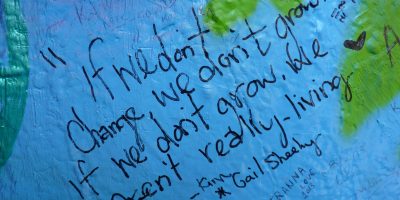 "If we don't
Change, we don't grow.
If we don't grow, We
aren't really-living
- Kinn
* Gail Sheehy